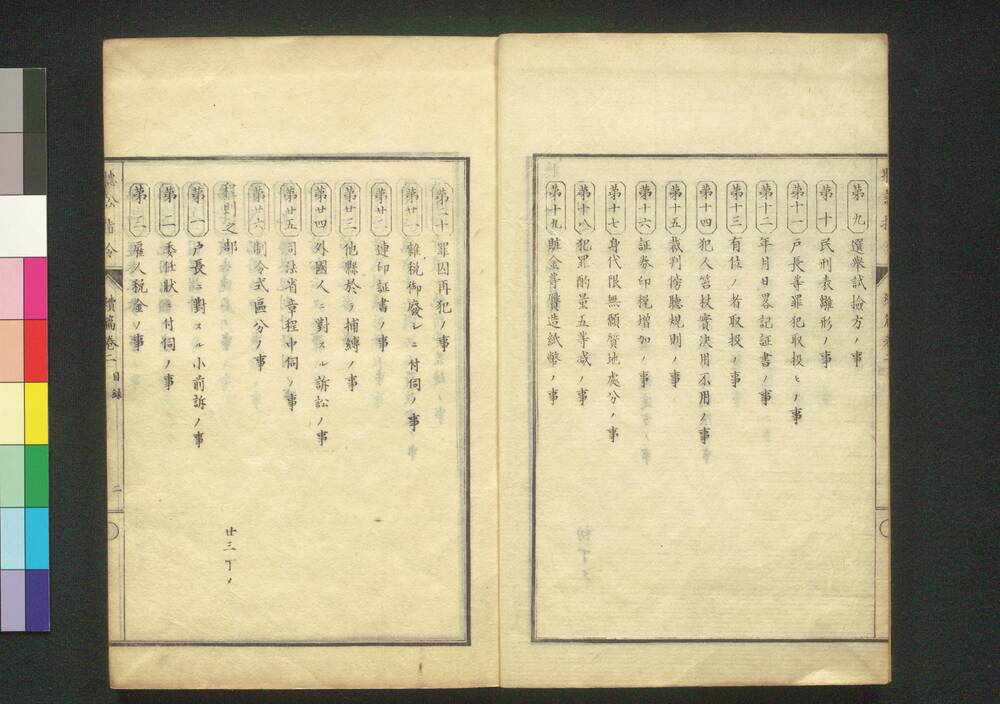 第九 選擧試撿方ノ事
第十 民刑表雛形ノ事
第十一 戸長等罪犯取扱ヒノ事
第十二 年月日畧記証書ノ事
第十三 有位ノ者取扱ノ事
第十四 犯人笞杖實決用不用ノ事
第十五 裁判傍聽規則ノ事
第十六 証券印税増加ノ事
第十七 身代限無願質地處分ノ事
第十八 犯罪酌量五等减ノ事
第十九 贓金等贋造紙幣ノ事
第二十 罪囚再犯ノ事
第廿一 雜税御廢シニ付伺ノ事
第廿二 連印証書ノ事
第廿三 他縣於ヲ捕縛ノ事
第廿四 外國人ニ對スル訴訟ノ事
第廿五 司法省章程中伺ノ事
第廿六 制令式區分ノ事
之部
廿三丁メ
第一 戸長ニ對スル小前訴ノ事
第二 委任狀ニ付伺ノ事
第三 雇人税金ノ事
聽訟指令 續篇卷二 目録 二